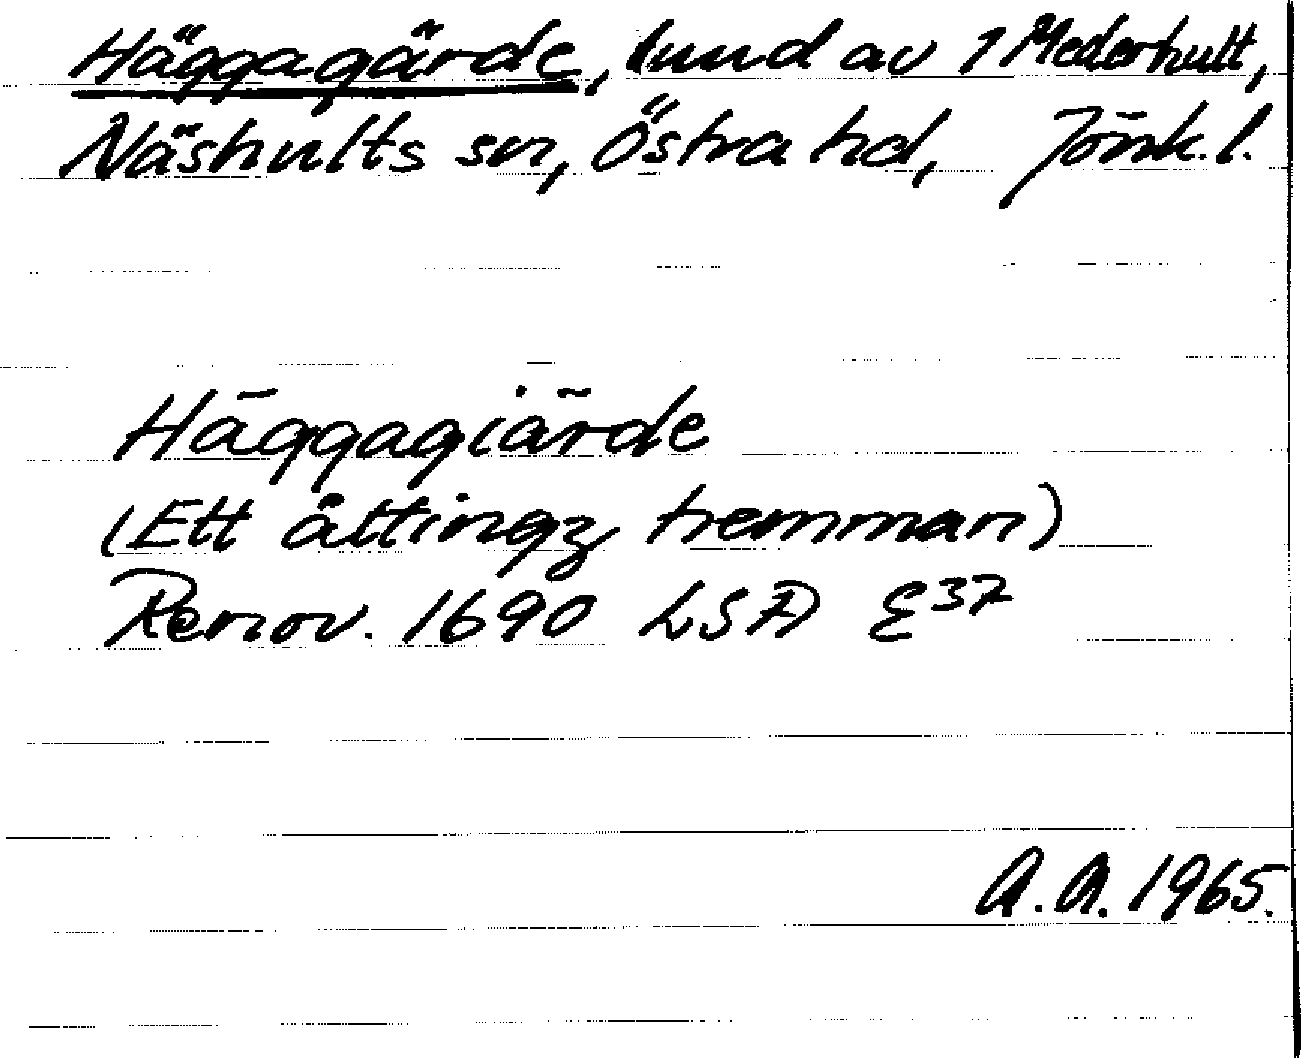 Häggagärde, lund av 1 Mederhult,
Näshults sn, Östra hd, Jönk. l.
Häggagiärde
(Ett åttingz hemman)
Renov. 1690 LSA E37
A.A. 1965.